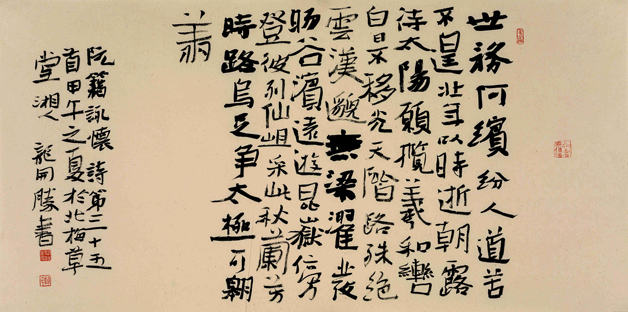 世務何繽紛人道苦
不遑壯年以時逝朝露
待太陽願攬羲和轡
白日不移光天階路殊絕
雲漢邈無梁濯髮
暘谷濱遠遊昆嶽傍
登彼列仙岨采此秋蘭芳
時路烏足争太極可翱
翔
阮籍詠懷詩第三十五
首甲午之夏於北梅草
堂湘人龍開勝書